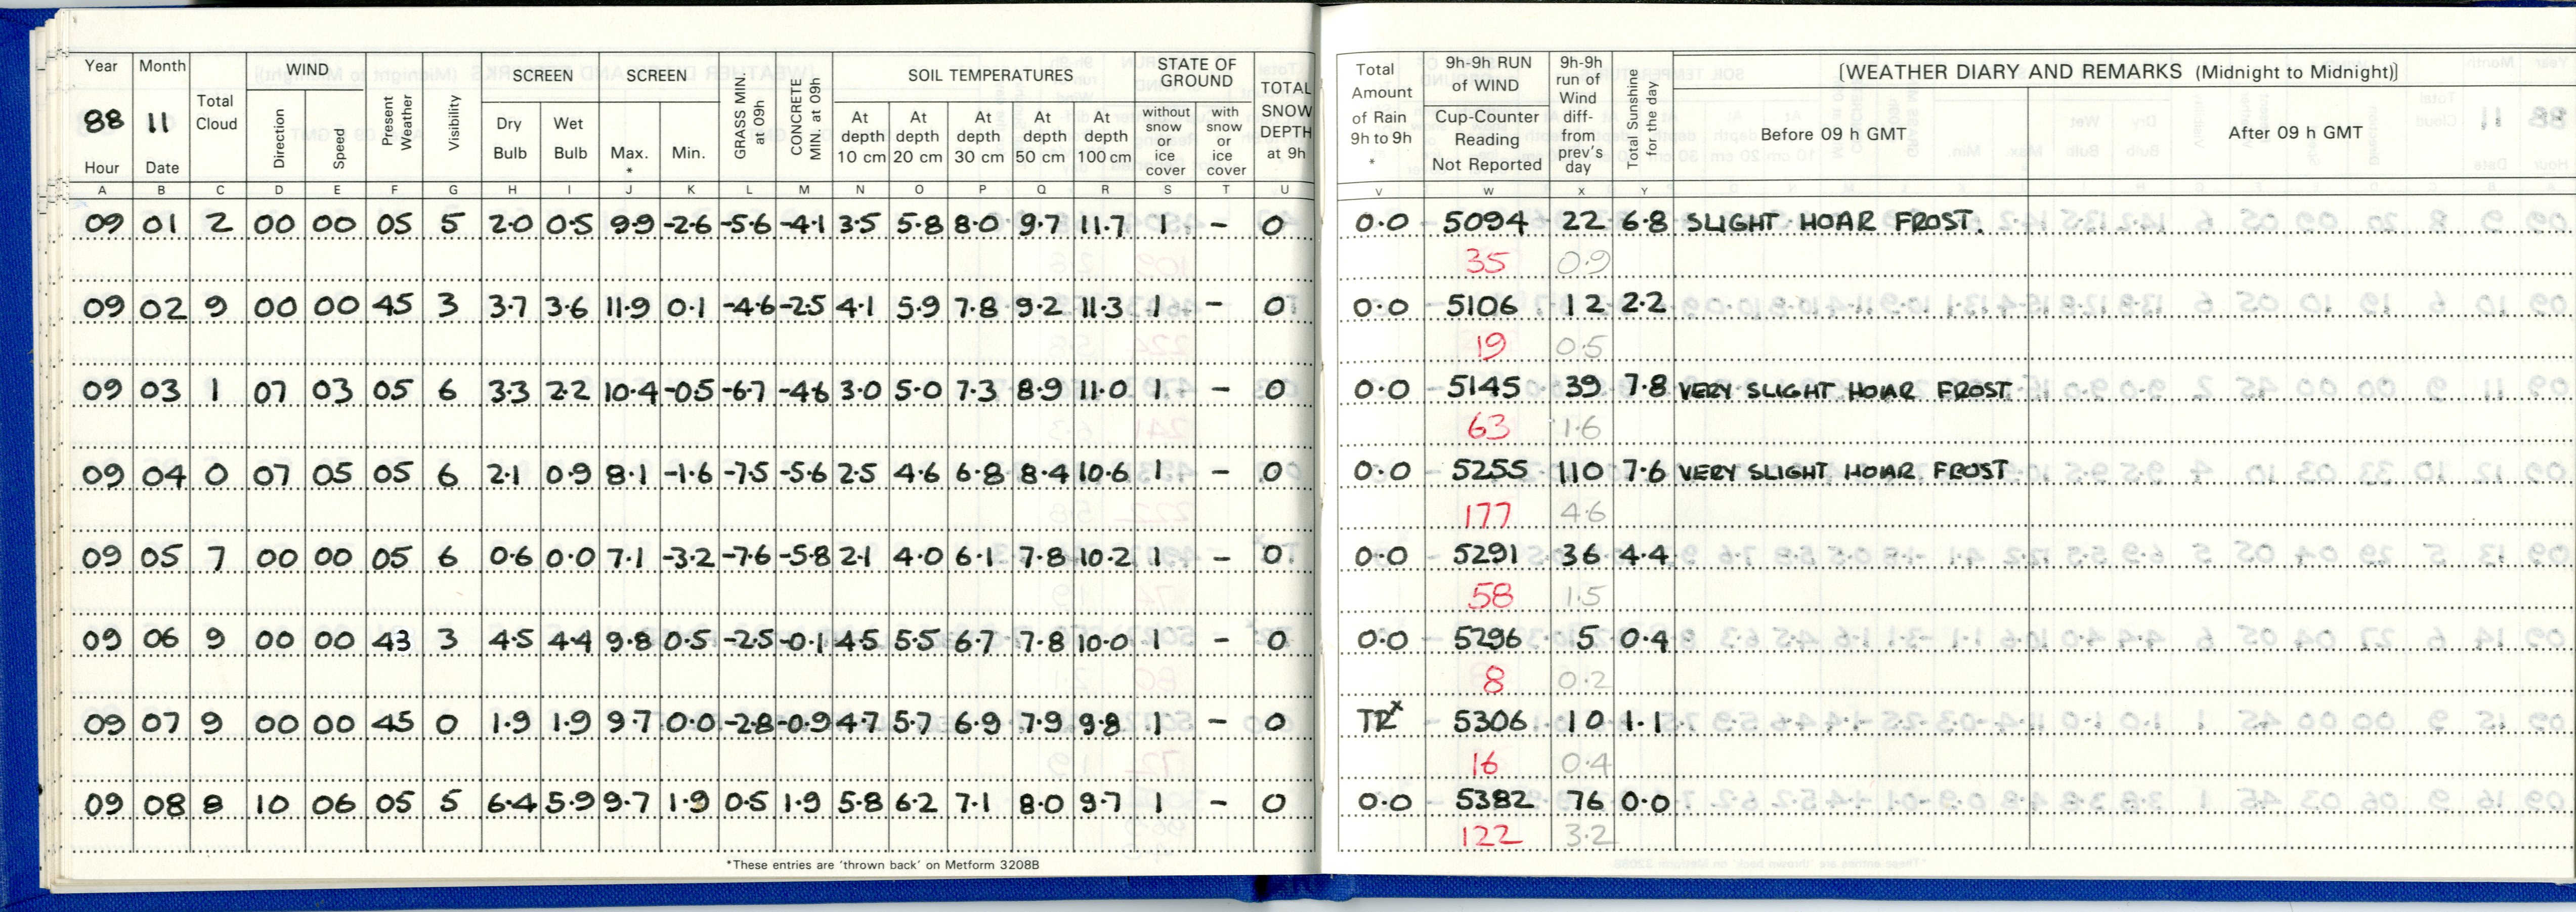 Year Month WIND SCREEN SCREEN SOIL TEMPERATURES STATE OF GROUND
88 11 Total Cloud Direction Speed Present Weather Visibility Dry Bulb Wet Bulb Max. * Min. GRASS MIN at 09h CONCRETE MIN. at 09h At depth 10 cm At depth 20 cm At depth 30 cm At depth 50 cm At depth 100 cm without snow or ice cover with snow or ice cover TOTAL SNOW DEPTH at 9h
Hour Date
A B C D E F G H I J K L M N O P Q R S T U
09 01 2 00 00 05 5 2.0 0.5 9.9 -2.6 -5.6 -4.1 3.5 5.8 8.0 9.7 11.7 1 - 0
09 02 9 00 00 45 3 3.7 3.6 11.9 0.1 -4.6 -2.5 4.1 5.9 7.8 9.2 11.3 1 - 0
09 03 1 07 03 05 6 3.3 2.2 10.4 -0.5 -6.7 -4.6 3.0 5.0 7.3 8.9 11.0 1 - 0
09 04 0 07 05 05 6 2.1 0.9 8.1 -1.6 -7.5 -5.6 2.5 4.6 6.8 8.4 10.6 1 - 0
09 05 7 00 00 05 6 0.6 0.0 7.1 -3.2 -7.6 -5.8 2.1 4.0 6.1 7.8 10.2 1 - 0
09 06 9 00 00 43 3 4.5 4.4 9.8 0.5 -2.5 -0.1 4.5 5.5 6.7 7.8 10.0 1 - 0
09 07 9 00 00 45 0 1.9 1.9 9.7 0.0 -2.8 -0.9 4.7 5.7 6.9 7.9 9.8 1 - 0
09 08 8 10 06 05 5 6.4 5.9 9.7 1.9 0.5 1.9 5.8 6.2 7.1 8.0 9.7 1 - 0
*These entries are 'thrown back' on Metform 3208B
Total Amount of Rain 9h to 9h * 9h-9h RUN of WIND Cup-Counter Reading Not Reported 9h-9h run of Wind diff- from prev's day Total Sunshine for the day [WEATHER DIARY AND REMARKS (Midnight to Midnight)]
Before 09 h GMT After 09 h GMT
V W X Y
0.0 5094 22 6.8 SLIGHT HOAR FROST.
35 0.9
0.0 5106 12 2.2
19 0.5
0.0 5145 39 7.8 VERY SLIGHT HOAR FROST
63 1.6
0.0 5255 110 7.6 VERY SLIGHT HOAR FROST
177 4.6
0.0 5291 36 4.4
58 1.5
0.0 5296 5 0.4
8 0.2
TRx 5306 10 1.1
16 0.4
0.0 5382 76 0.0
122 3.2